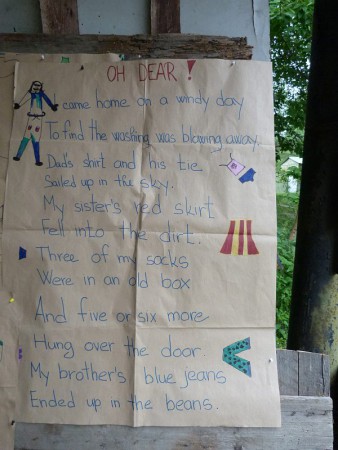 OH DEAR!
I came home on a windy day
To find the washing was blowing away.
Dad's shirt and his tie
Sailed up in the sky.
My sister's red skirt
Fell into the dirt.
Three of my socks
Were in an old box
And five or six more
Hung over the door.
My brother's blue jeans
Ended up in the beans.